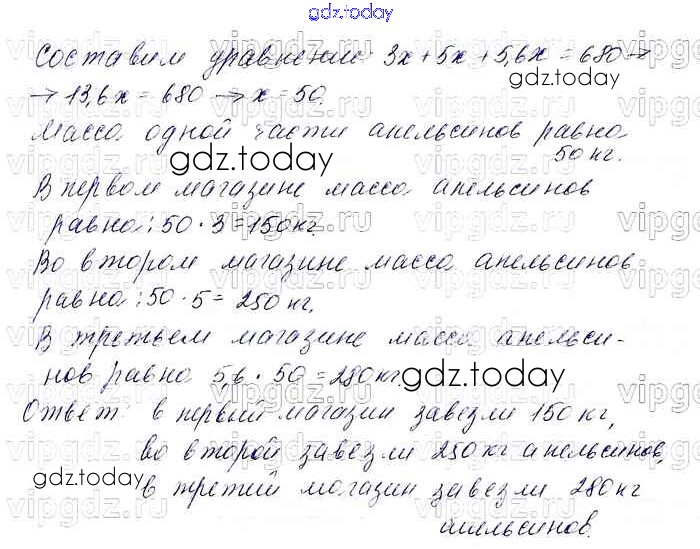 gdz.today
Составим уравнение: 3х + 5х + 5,6х = 680 →
→ 13,6х = 680 → х = 50.
Масса одной части апельсинов равна
50 кг.
gdz.today
В первом магазине масса апельсинов
равна: 50 · 3 = 150 кг.
Во втором магазине масса апельсинов
равна: 50 · 5 = 250 кг.
В третьем магазине масса апельси-
нов равна 5,6 · 50 = 280 кг.
gdz.today
Ответ: в первый магазин завезли 150 кг,
во второй завезли 250 кг апельсинов,
gdz.today
в третий магазин завезли 280 кг
апельсинов.